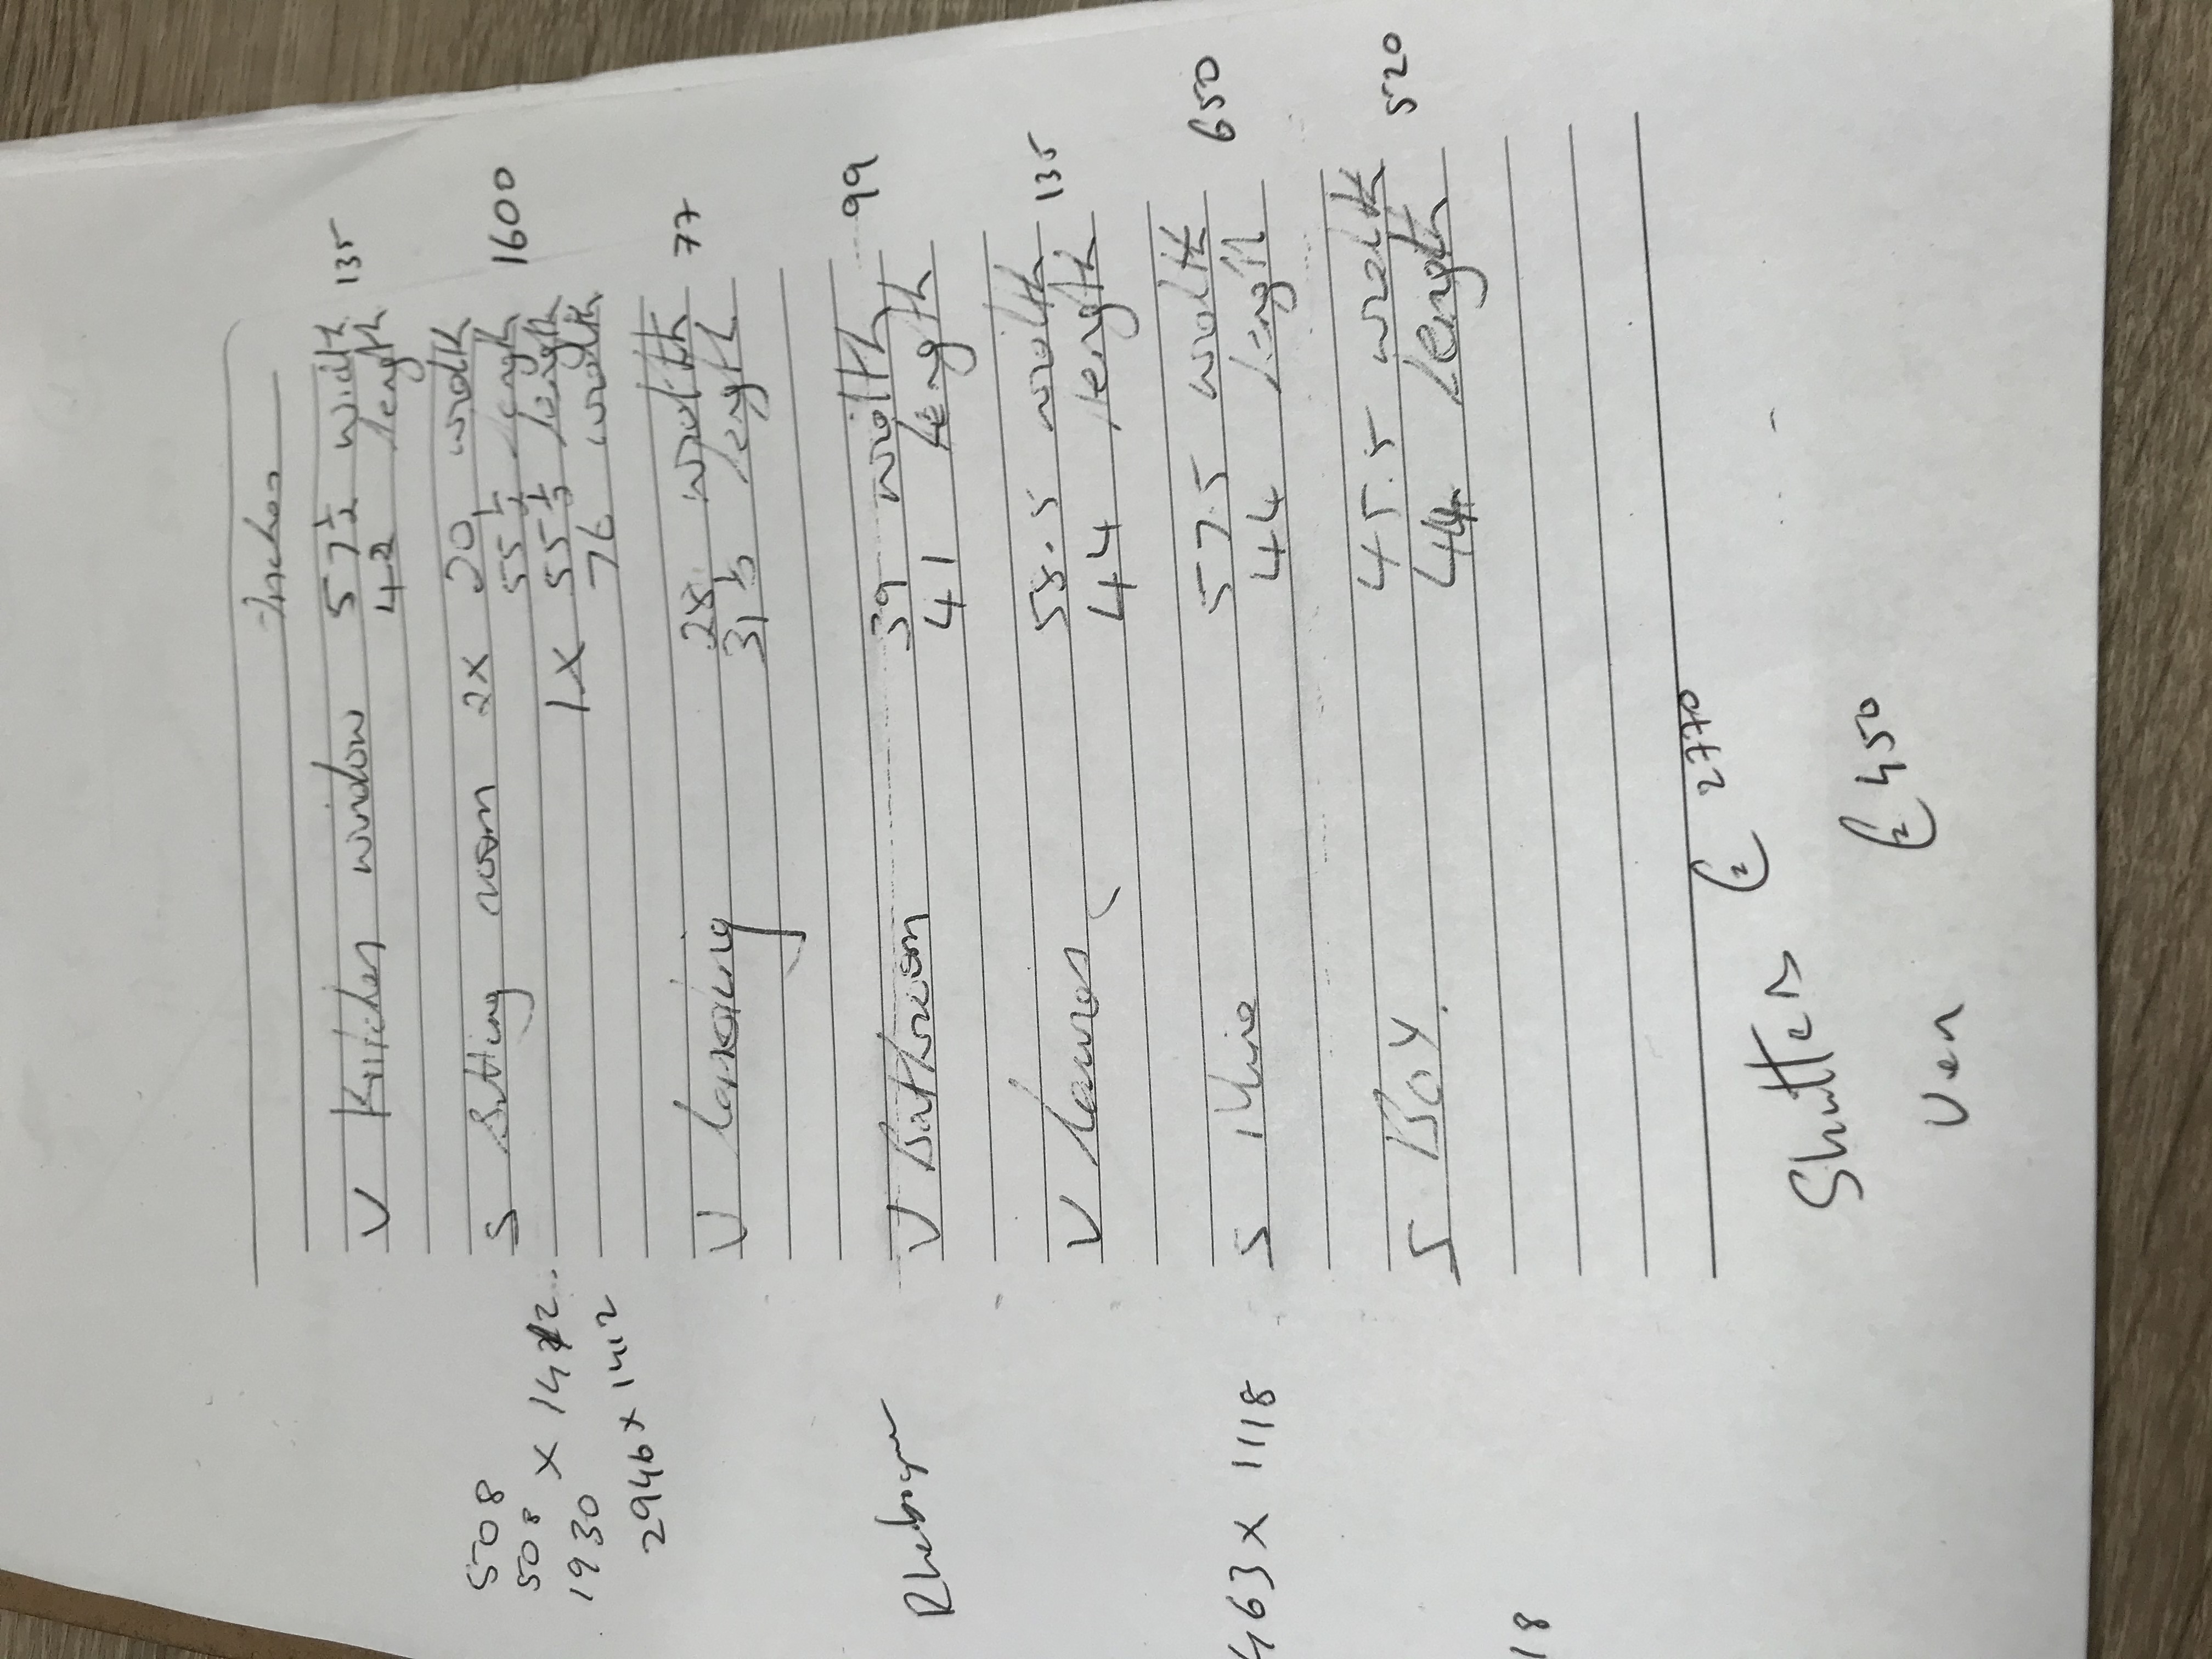 Inches
V Kitchen window 57 1/2 width 135
42 length
S Sitting room 2x 20 width
508 55 1/2 length 1600
508 x 1412 1x 55 1/2 length
1930 76 width
2946 x 1412
V Landing 28 width 77
31 1/2 length
V Bathroom 39 width 99
41 length
V 58.5 width 135
44 length
S 57.5 width 650
463 x 1118 44 length
S Boy. 45.5 width 520
44 length
18
Shutters 2770
Ven 450